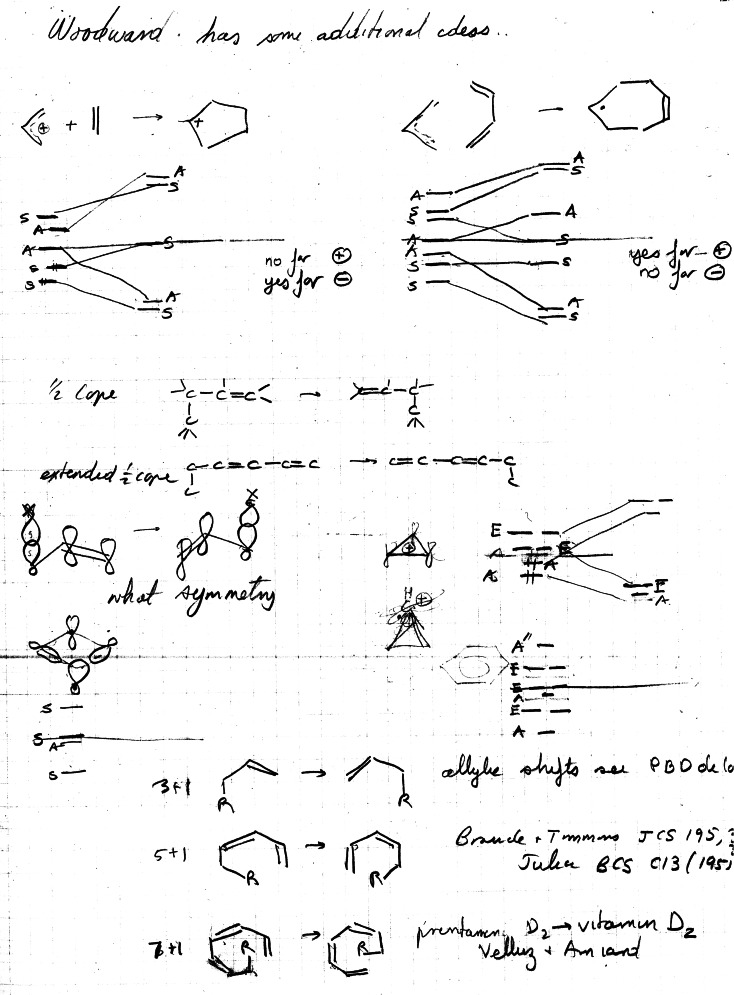 Woodward has some additional ideas..
+ → +
→
A
S
A
S
S
A
S
A
S
A
A
S
S
A
S
S
no for ⊕
yes for ⊖
A
S
S
A
A
S
S
A
S
yes for ⊕
no for ⊖
½ Cope C-C=C → C=C-C
C C
extended ½ cope C-C=C-C=C → C=C-C=C-C
C C
what symmetry
E
A
E
A
A
E
A
H
⊕
A''
E
E
A
E
A
S
S
A
S
3+1 R → R allylic shifts see PBD de la
5+1 R → R Braude + Timmons JCS 195
BCS C13 (195
7+1 R → R D2 → vitamin D2
Velluz + Amiard